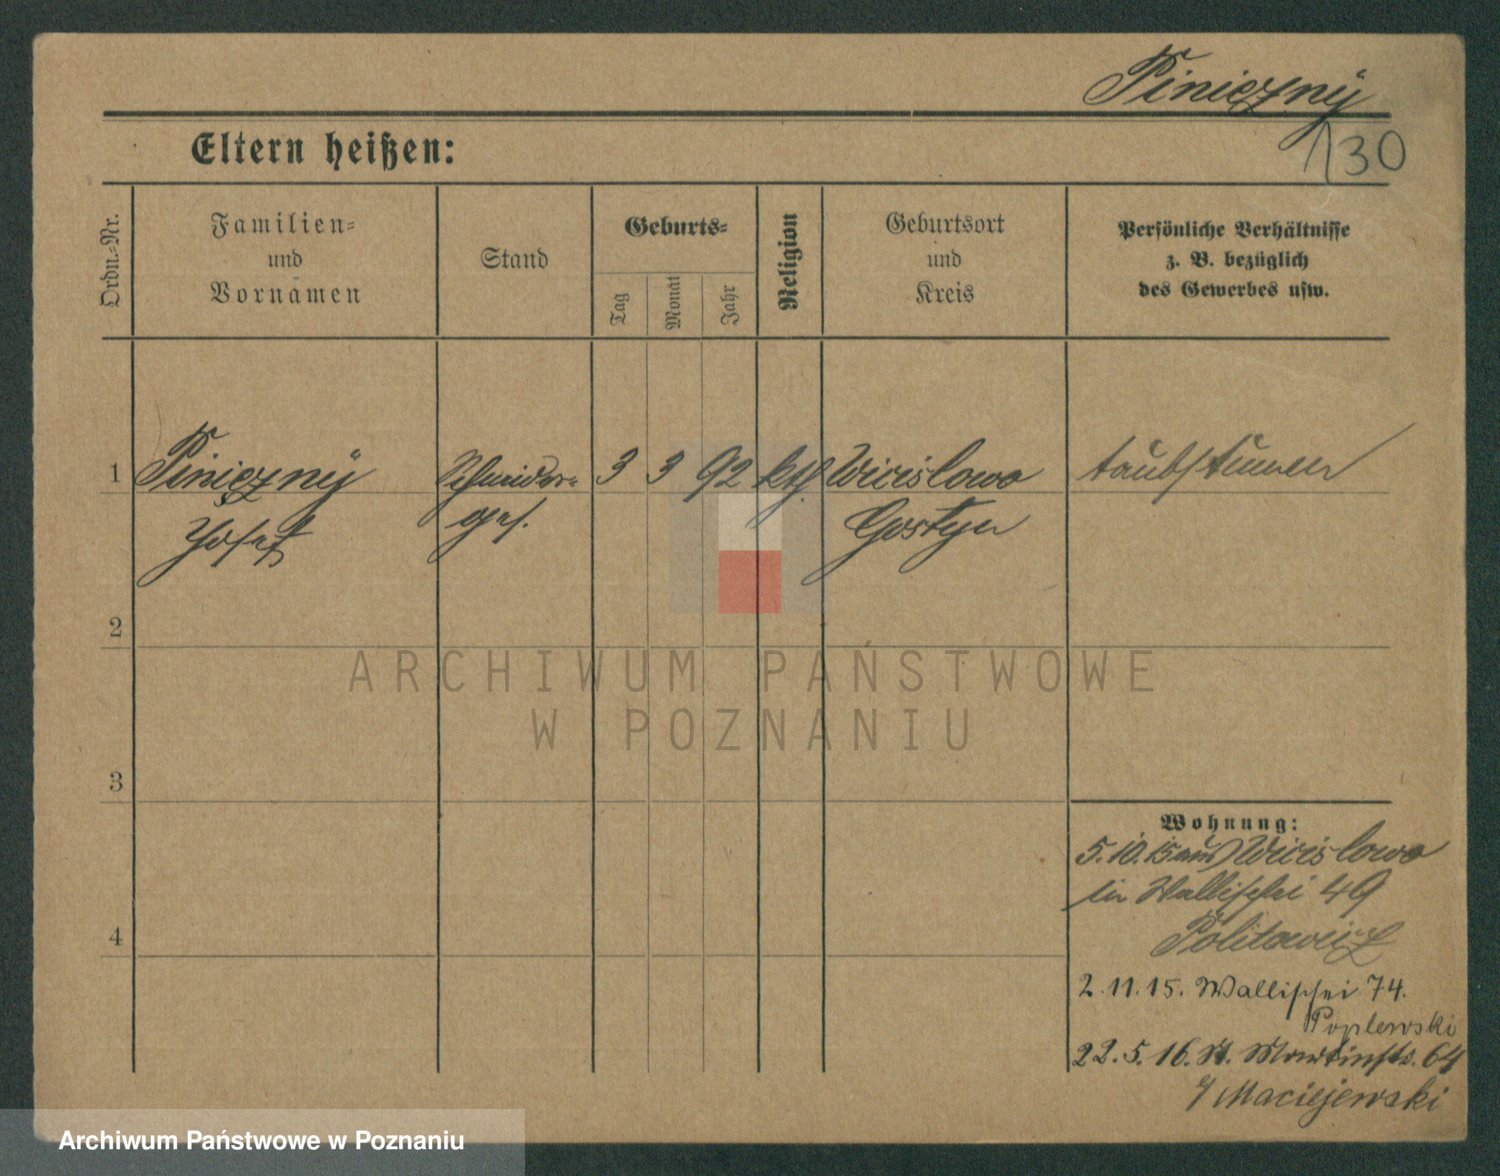 Piniczny
130
Eltern heißen:
Ordn.-Nr.
Familien-
und
Vornamen
Stand
Geburts-
Tag
Monat
Jahr
Religion
Geburtsort
und
Kreis
Persönliche Verhältnisse
z. B. bezüglich
des Gewerbes usw.
1 Piniczny Schneider- 3 3 92 kth. Wziąslowo taubstumm
Josef ges. Gostyn
2
3
4
ARCHIWUM PAŃSTWOWE
W POZNANIU
Wohnung:
5.10.15 aus
in Wallischei 49
2.11.15. Wallischei 74.
Poplewski
22.5.16. St. Martinstr. 64
Maciejewski
Archiwum Państwowe w Poznaniu